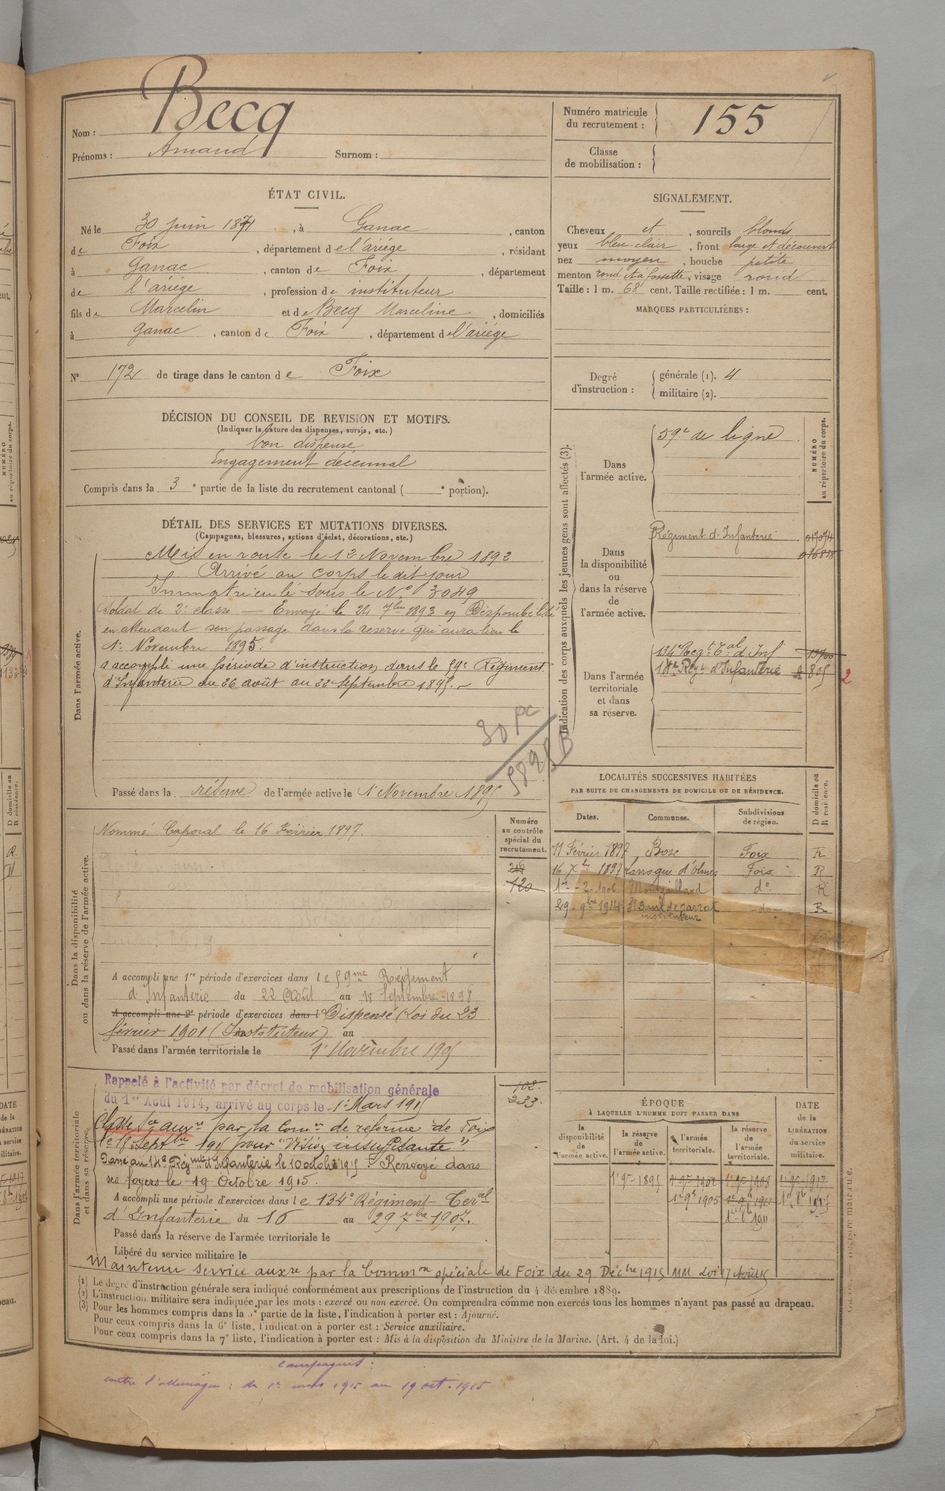 Nom : Becq
Prénoms : Amand Surnom :
Numéro matricule du recrutement : 155
Classe de mobilisation :
ÉTAT CIVIL.
Né le 30 juin 1871, à Ganac, canton
de Foix, département de l'ariége, résidant
à Ganac, canton de Foix, département
de l'ariége, profession de instituteur
fils de Marcelin et de Becq Marceline, domiciliés
à Ganac, canton de Foix, département de l'ariége
N° 172 de tirage dans le canton de Foix
SIGNALEMENT.
Cheveux et, sourcils blonds
yeux bleu-clair, front large et découvert
nez moyen, bouche petite
menton rond et à fossette, visage rond
Taille : 1 m. 68 cent. Taille rectifiée : 1 m. cent.
MARQUES PARTICULIÈRES :
Degré d'instruction : générale (1). 4
militaire (2).
DÉCISION DU CONSEIL DE REVISION ET MOTIFS.
(Indiquer la nature des dispenses, sursis, etc.)
bon dispensé
Engagement décennal
Compris dans la 3e partie de la liste du recrutement cantonal ( e portion).
DÉTAIL DES SERVICES ET MUTATIONS DIVERSES.
(Campagnes, blessures, actions d'éclat, décorations, etc.)
Dans l'armée active.
Mis en route le 12 Novembre 1892
Arrivé au corps le dit jour
Immatriculé sous le N° 3049
Soldat de 2e classe — Envoyé le 24 7bre 1893 en Disponibilité
en attendant son passage dans la réserve qui aura lieu le
1er Novembre 1895.
a accompli une période d'instruction dans le 59e Régiment
d'Infanterie du 26 août au 22 Septembre 1895.
Passé dans la réserve de l'armée active le 1 Novembre 1895
Indication des corps auxquels les jeunes gens sont affectés (3).
NUMÉRO au répertoire du corps.
Dans l'armée active.
59e de ligne
Dans la disponibilité ou dans la réserve de l'armée active.
Régiment d'Infanterie
Dans l'armée territoriale et dans sa réserve.
134e Reg. Tal d'Inf
Regt d'Infanterie 2
LOCALITÉS SUCCESSIVES HABITÉES
PAR SUITE DE CHANGEMENTS DE DOMICILE OU DE RÉSIDENCE.
Dates. Communes. Subdivisions de région. D domicile ou R résidence.
11 Février 1897 Foix R
16 7bre 1897 d'olmes Foix R
Montgaillard do R
29-9bre 1914 do R
instituteur
Dans la disponibilité ou dans la réserve de l'armée active.
Numéro au contrôle spécial du recrutement.
120
Nommé Caporal le 16 Février 1897.
A accompli une 1re période d'exercices dans le 59me Régiment
d'Infanterie du 22 Août au 18 Septembre 1898
A accompli une 2e période d'exercices dans l Dispensé (Loi du 23
février 1901 (Instituteur) au
Passé dans l'armée territoriale le 1 Novembre 1905
Dans l'armée territoriale et dans sa réserve.
233.
Rappelé à l'activité par décret de mobilisation générale
du 1er Août 1914, arrivé au corps le 1er Mars 1915
par la Comon de réforme de Foix
le 15 Septbre 1915 pour "Vision insuffisante".
Renvoyé dans
ses foyers le 19 Octobre 1915.
A accompli une période d'exercices dans le 134e Régiment Teral
d'Infanterie du 16 au 29 7bre 1907.
Passé dans la réserve de l'armée territoriale le
Libéré du service militaire le
Maintenu service auxre par la Common spéciale de Foix du 29 Décbre 1915 MM Loi 17 Août 15
ÉPOQUE
À LAQUELLE L'HOMME DOIT PASSER DANS
la disponibilité de l'armée active. la réserve de l'armée active. l'armée territoriale. la réserve de l'armée territoriale.
DATE de la LIBÉRATION du service militaire.
1er 9bre 1895
1er 9bre 1905
(1) Le degré d'instruction générale sera indiqué conformément aux prescriptions de l'instruction du 4 décembre 1889.
(2) L'instruction militaire sera indiquée par les mots : exercé ou non exercé. On comprendra comme non exercés tous les hommes n'ayant pas passé au drapeau.
(3) Pour les hommes compris dans la 5e partie de la liste, l'indication à porter est : Ajourné.
Pour ceux compris dans la 6e liste, l'indication à porter est : Service auxiliaire.
Pour ceux compris dans la 7e liste, l'indication à porter est : Mis à la disposition du Ministre de la Marine. (Art. 4 de la loi.)
Campagnes :
contre l'allemagne : du 1er mars 1915 au 19 oct. 1915